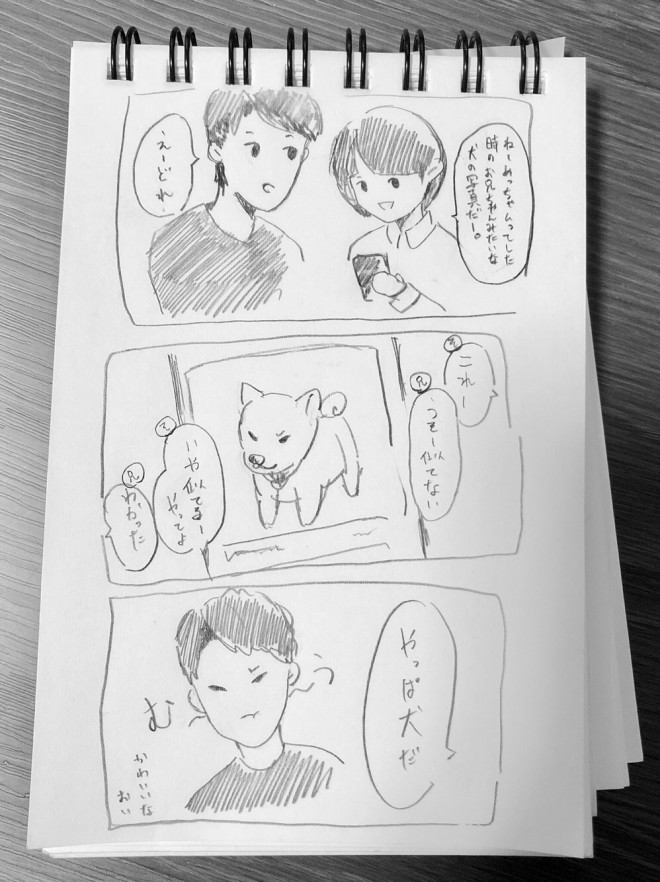 ねーめっちゃムってした
時のお兄ちゃんみたいな
犬の写真だー。
えーどれ
これー
兄
うそー似てない
いや似てるー
やってよ
兄
わかった
やっぱ犬だ
む
う
かわいいな
おい